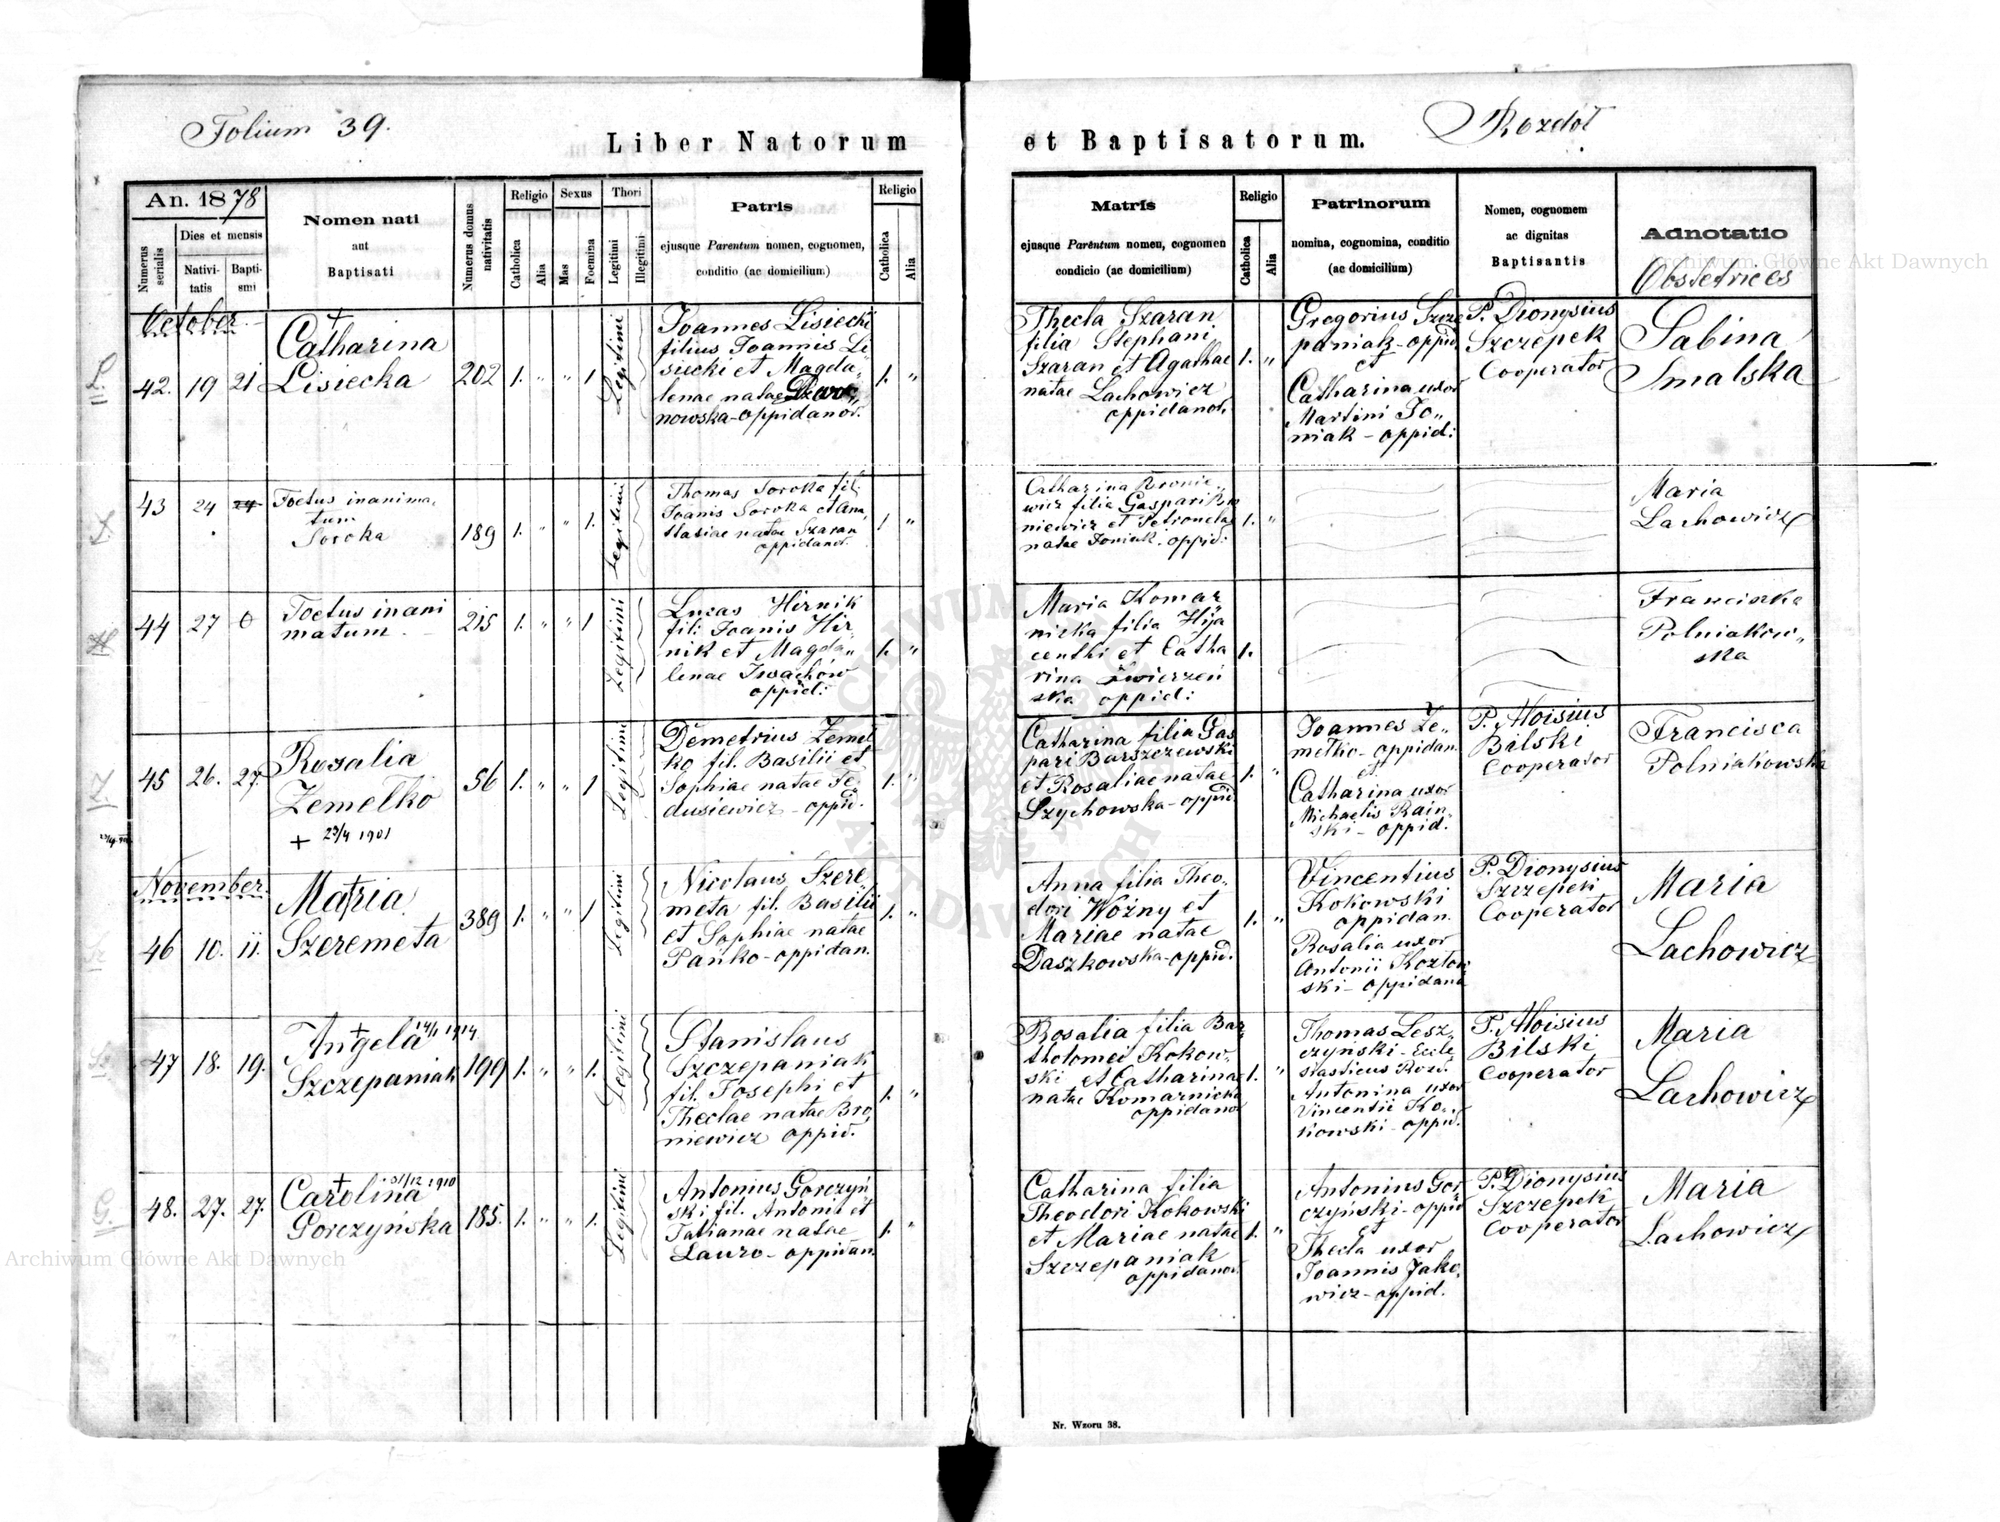 Folium 39.
Liber Natorum et Baptisatorum.
Rozdół
An. 1878
Numerus serialis
Dies et mensis
Nativitatis
Baptismi
Nomen nati
aut
Baptisati
Numerus domus nativitatis
Religio
Catholica
Alia
Sexus
Mas
Foemina
Thori
Legitimi
Illegitimi
Patris
ejusque Parentum nomen, cognomen,
conditio (ac domicilium)
Religio
Catholica
Alia
Matris
ejusque Parentum nomen, cognomen
condicio (ac domicilium)
Religio
Catholica
Alia
Patrinorum
nomina, cognomina, conditio
(ac domicilium)
Nomen, cognomem
ac dignitas
Baptisantis
Adnotatio
Obstetrices
October
42. 19 21
+
Catharina
Lisiecka
202 1. " " 1 Legitimi
Joannes Lisiecki
filius Joannis Li
siecki et Magda„
lenae natae
nowska-oppidanor.
1. "
Thecla Szaran
filia Stephani
Szaran et Agathae
natae Lachowicz
oppidanor.
1. "
Gregorius Szcze
paniak-oppid.
et
Catharina uxor
Martini Jo„
niak - oppid:
P. Dionysius
Szczepek
Cooperator
Sabina
Smalska
43 24 24
Foetus inanima„
tum
Soroka
189 1. " " 1. Legitimi
Thomas Soroka fil.
Joanis Soroka et Ana
stasiae natae Szaran
oppidanor.
1 "
Catharina Bronie„
wicz filia Gaspari Bro
niewicz et Petronelae
natae Joniak. oppid:
1. "
Maria
Lachowicz
44 27 0
Foetus inani
matum
215 1. " " 1 Legitimi
Lucas Hirnik
fil: Joanis Hir„
nik et Magda„
lenae Iwachów
oppid:
1. "
Maria Komar
nicka filia Hya
centhi et Catha
rina Zwierzeń
ska oppid:
1.
Franciszka
Polniakow„
ska
45 26. 27.
Rosalia
Zemełko
+ 23/4 1901
56 1. " " 1 Legitimi
Demetrius Zemeł
ko fil. Basilii et
Sophiae natae Fe„
dusiewicz - oppid.
1. "
Catharina filia Gas
pari Barszczewski
et Rosaliae natae
Szychowska-oppid.
1. "
Joannes Ze„
mełko-oppidan.
et
Catharina uxor
Michaelis Rain„
ski - oppid.
P. Aloisius
Bilski
Cooperator
Francisca
Polniakowska
November.
46 10. 11.
+
Maria
Szeremeta
389 1. " " 1 Legitimi
Nicolaus Szere
meta fil. Basilii
et Sophiae natae
Pańko-oppidan.
1. "
Anna filia Theo„
dori Woźny et
Mariae natae
Daszkowska-oppid.
1. "
Vincentius
Kokowski
oppidan.
Rosalia uxor
Antonii Kozłow
ski-oppidana
P. Dionysius
Szczepek
Cooperator
Maria
Lachowicz
47 18. 19.
+ 14/1 1914.
Angela
Szczepaniak
199 1. " " 1. Legitimi
Stanislaus
Szczepaniak
fil. Josephi et
Theclae natae Bro„
niewicz oppid.
1. "
Rosalia filia Bar„
tholomei Kokow„
ski et Catharinae
natae Komarnicka
oppidanor
1. "
Thomas Lesz„
czyński-Eccle„
siasticus Rozd.
Antonina uxor
Vincentii Ko„
kowski-oppid.
P. Aloisius
Bilski
Cooperator
Maria
Lachowicz
48. 27. 27.
+ 31/12 1910
Carolina
Gorczyńska
185. 1. " " 1. Legitimi
Antonius Gorczyń
ski fil. Antonii et
Tatianae natae
Lauro-oppidan.
1. "
Catharina filia
Theodori Kokowski
et Mariae natae
Szczepaniak
oppidanor.
1. "
Antonius Gor
czyński-oppid
et
Thecla uxor
Joannis Jako„
wicz-oppid.
P. Dionysius
Szczepek
Cooperator
Maria
Lachowicz
Nr. Wzoru 38.
Archiwum Główne Akt Dawnych
Archiwum Główne Akt Dawnych